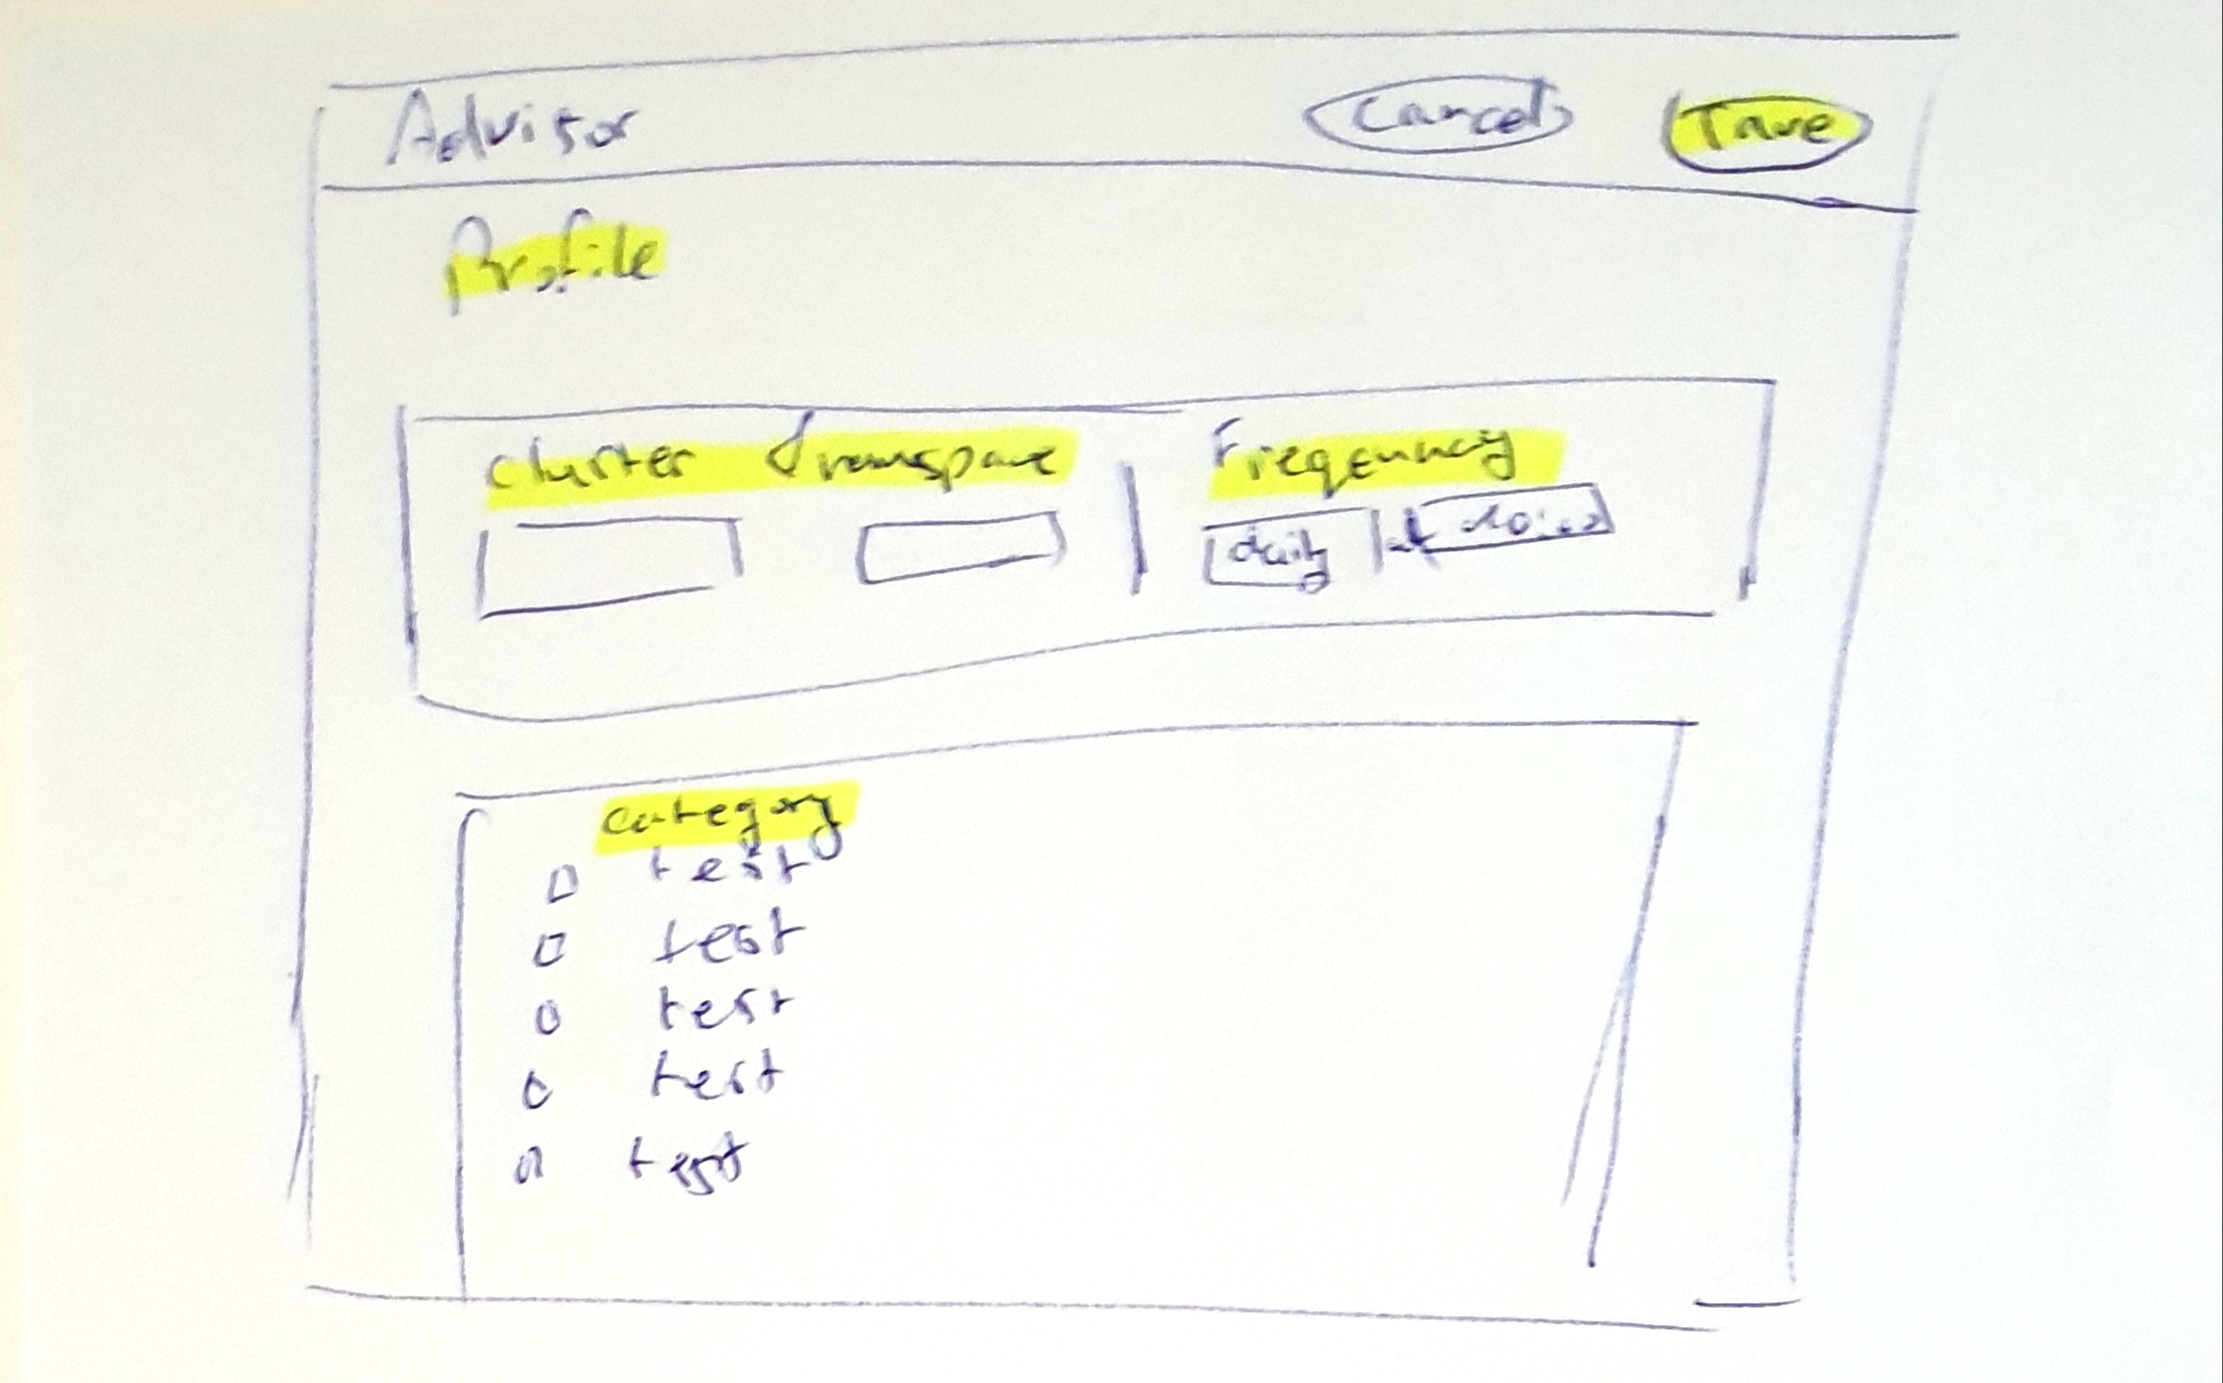 Advisor Cancel Save
Profile
Cluster Freqeuncy
daily at
category
test
test
test
test
test